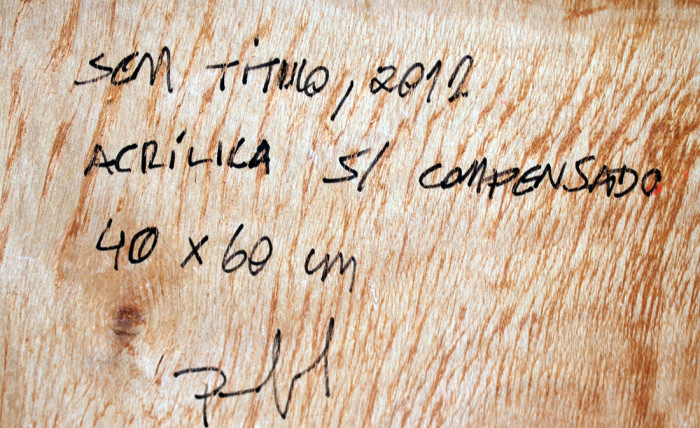 SEM TÍTULO, 2012
ACRÍLICA S/ COMPENSADO
40 x 60 cm